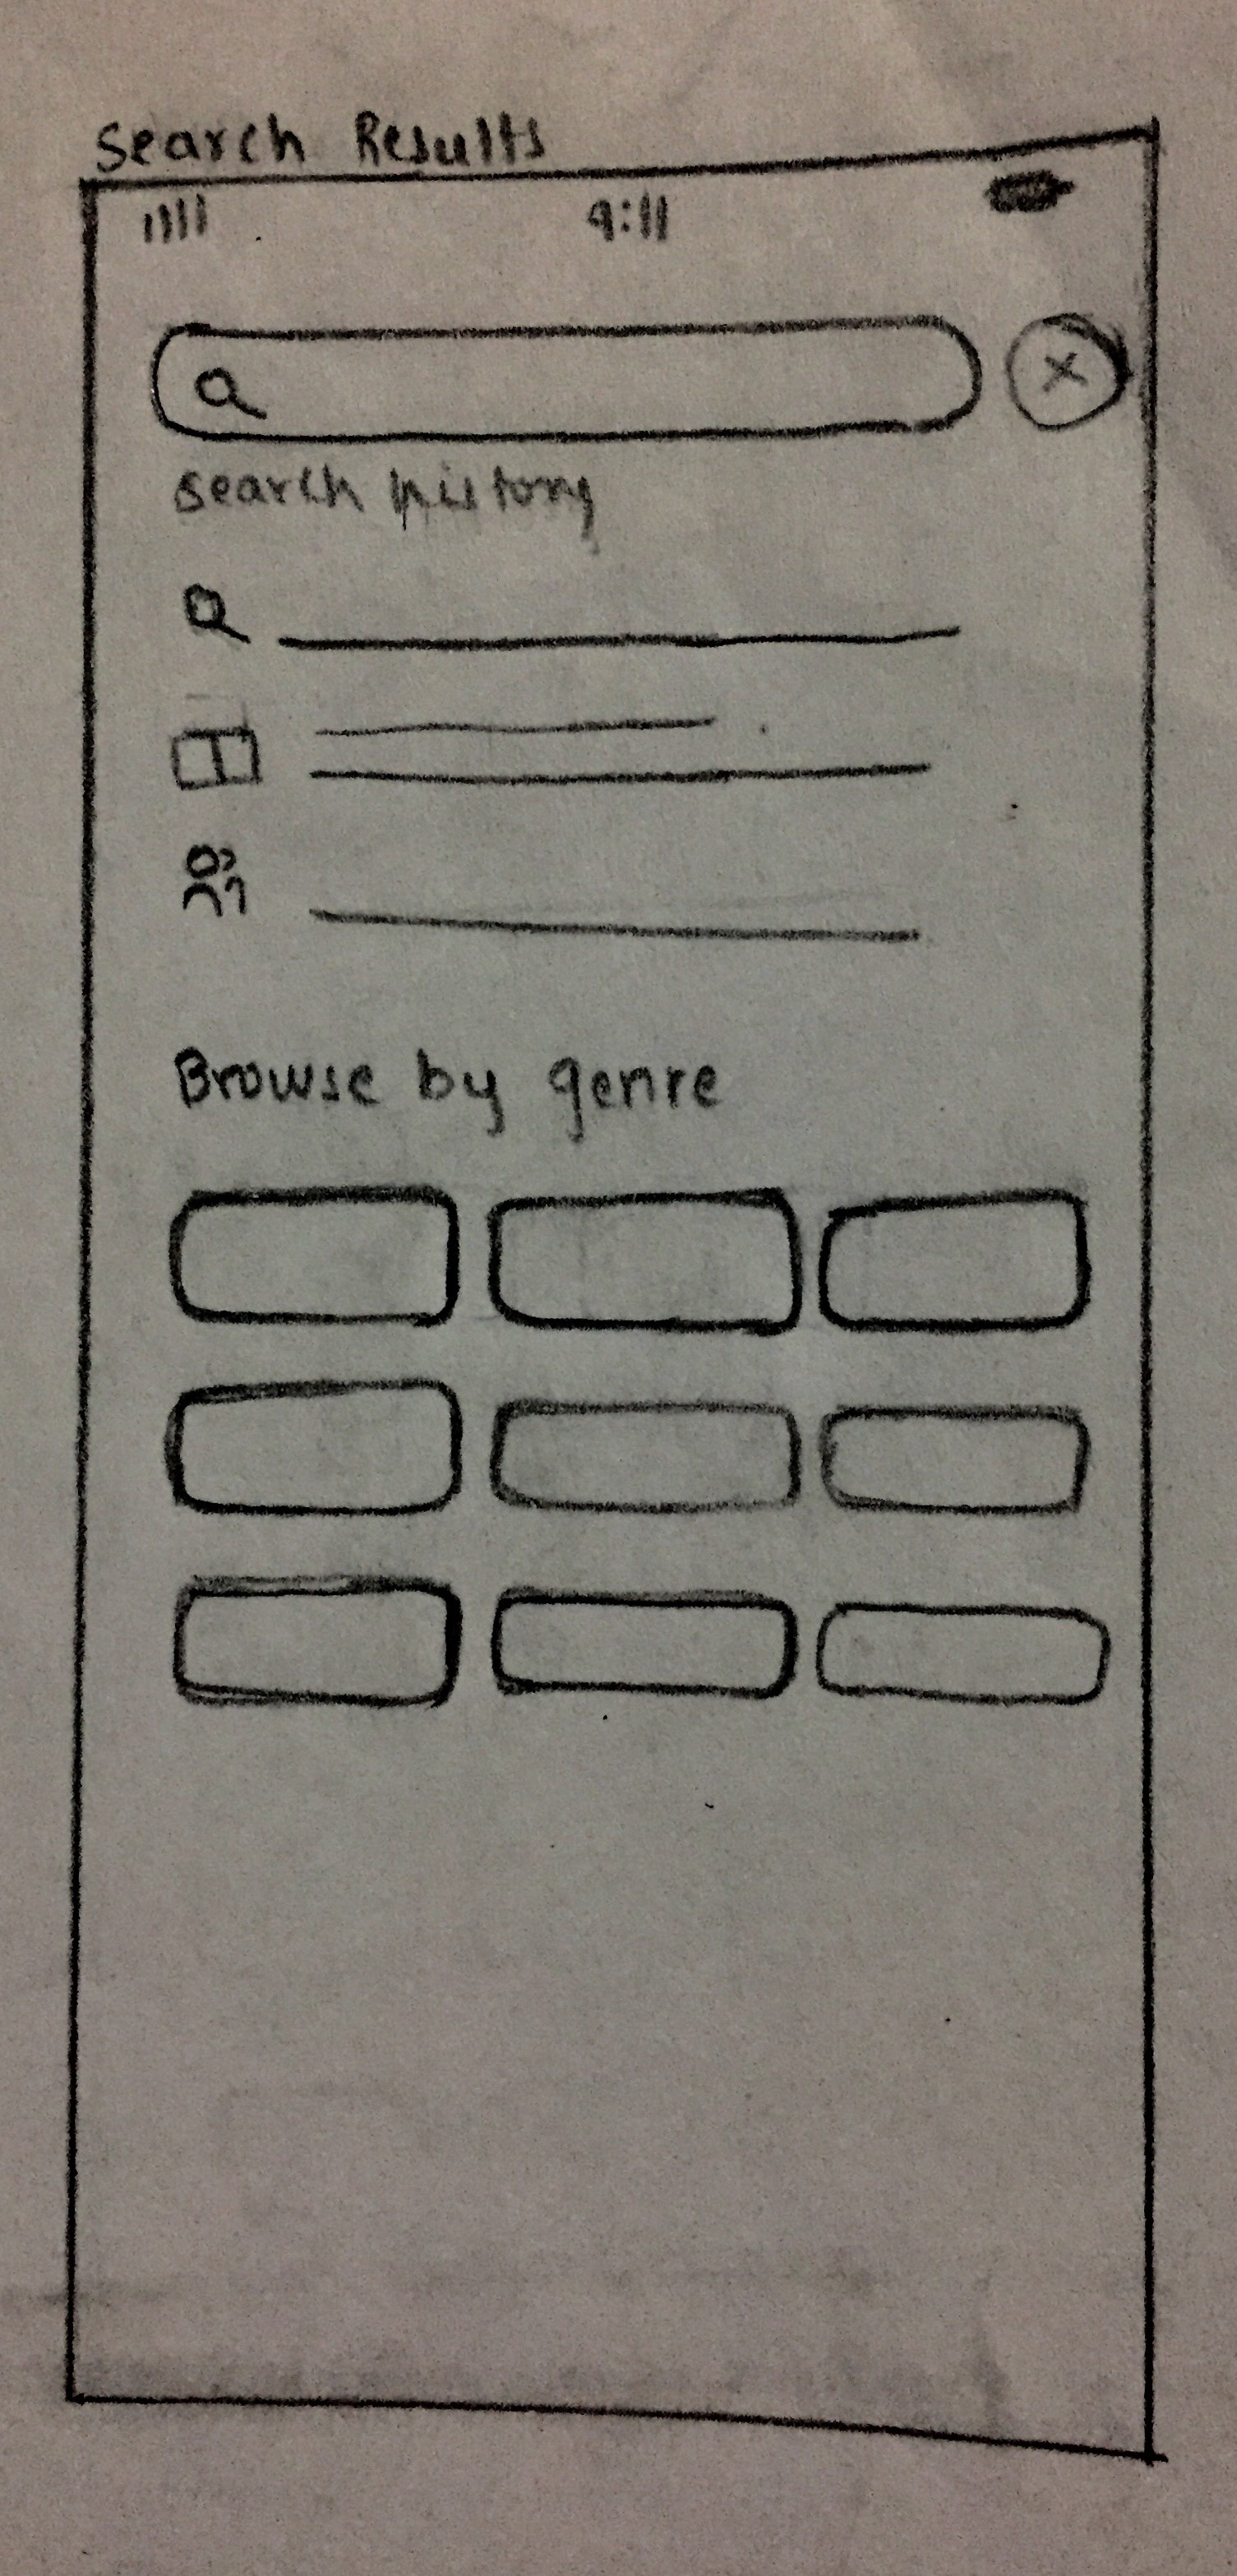 Search Results
9:11
search history
Browse by genre